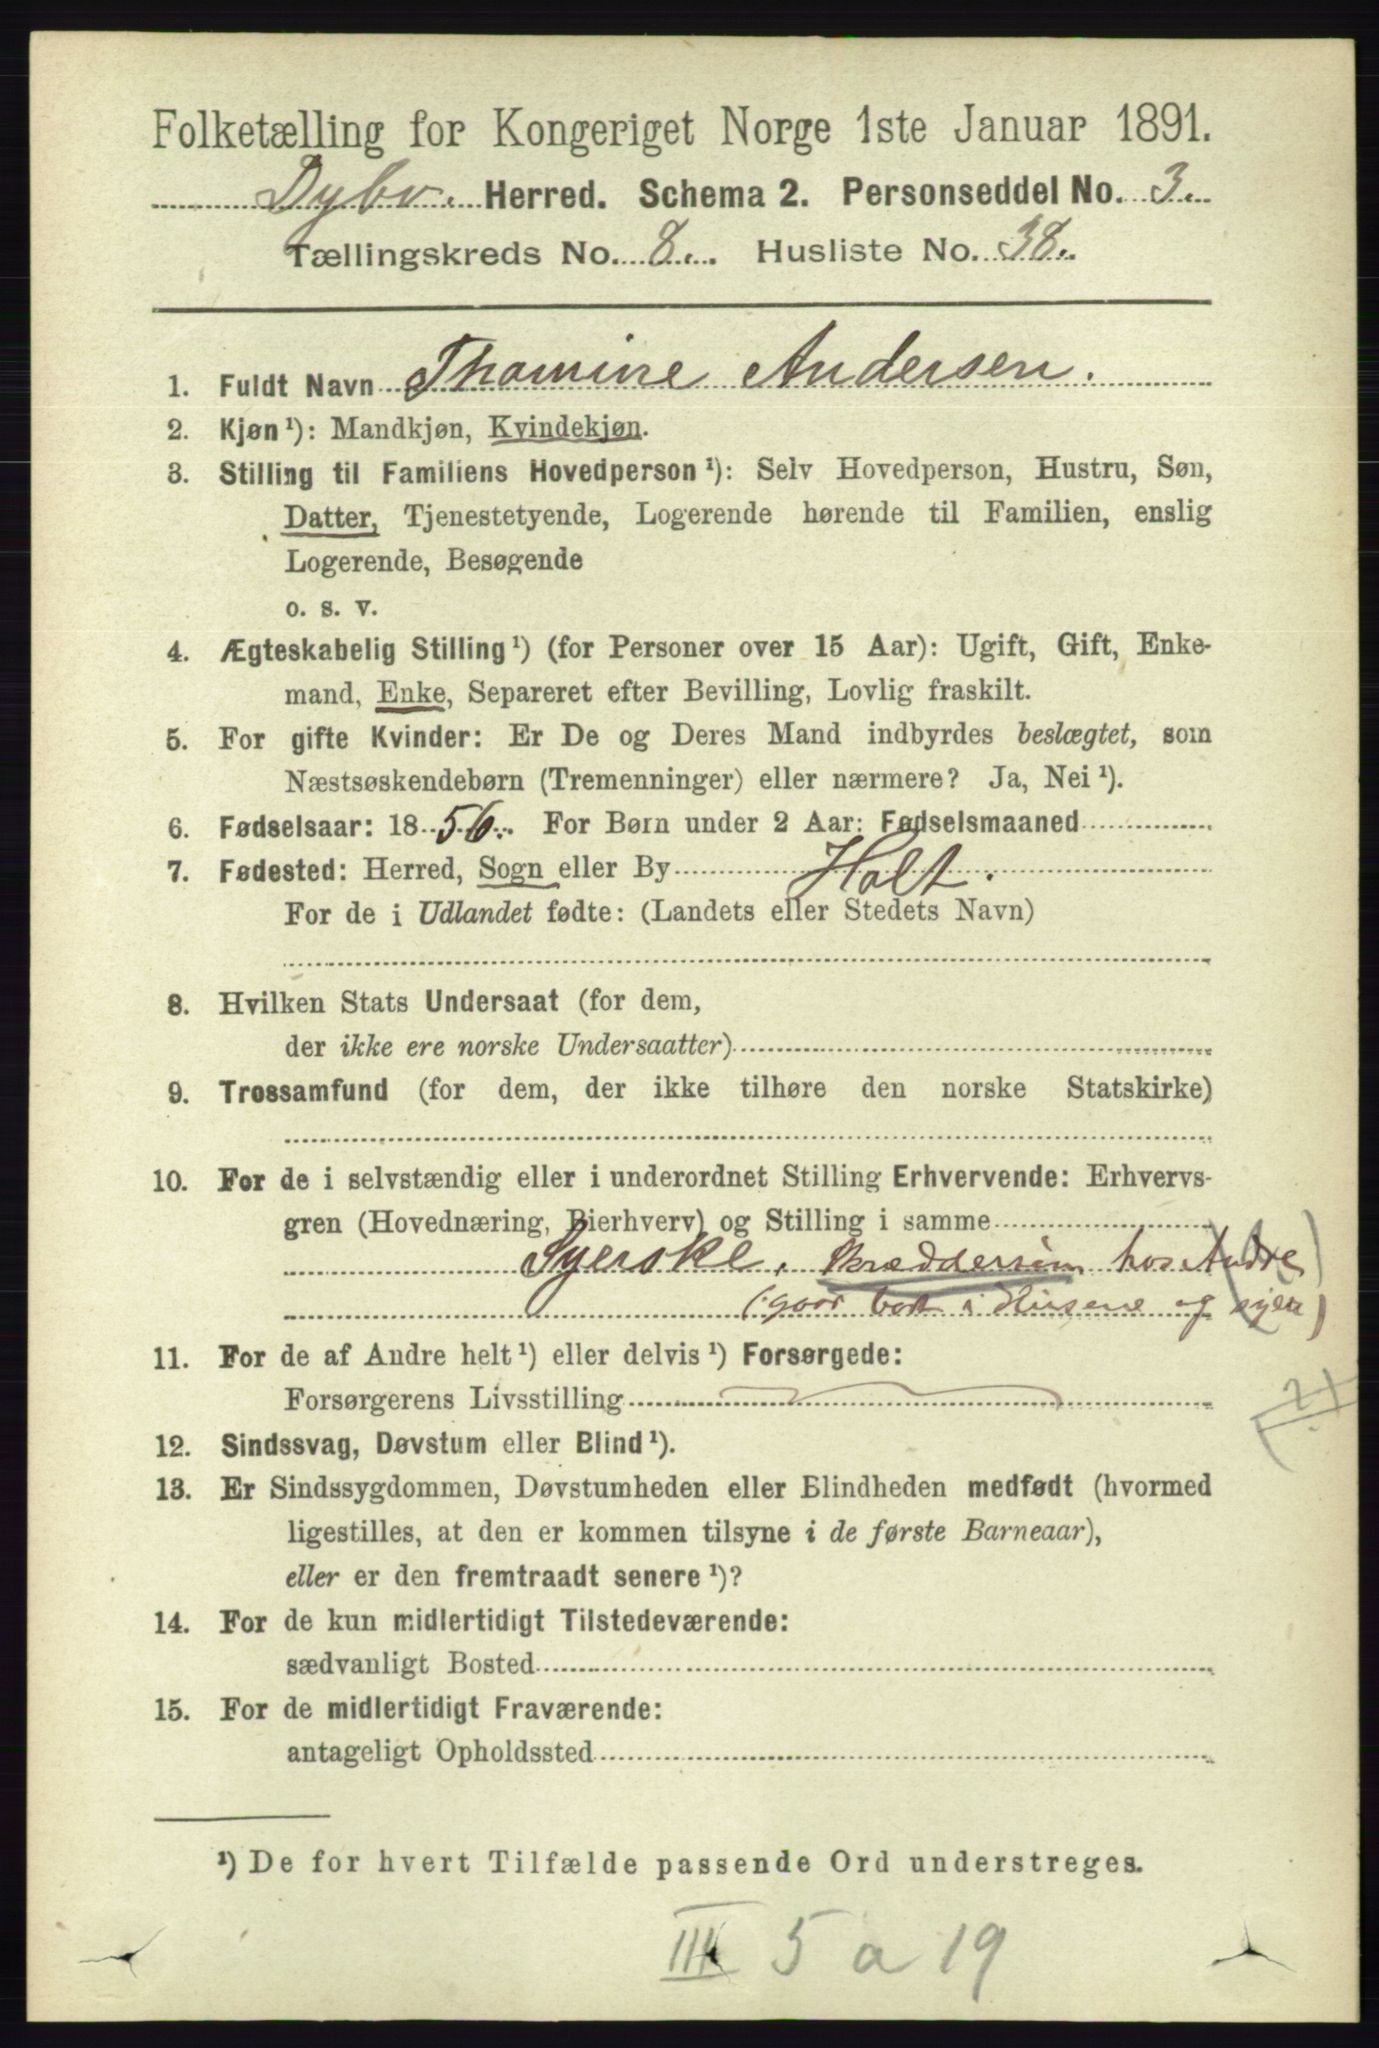 Folketælling for Kongeriget Norge 1ste Januar 1891.
Dybv. Herred. Schema 2. Personseddel No. 3.
Tællingskreds No. 8. Husliste No. 38.
1. Fuldt Navn Thomine Andersen.
2. Kjøn¹): Mandkjøn, Kvindekjøn.
3. Stilling til Familiens Hovedperson¹): Selv Hovedperson, Hustru, Søn,
Datter, Tjenestetyende, Logerende hørende til Familien, enslig
Logerende, Besøgende
o. s. v.
4. Ægteskabelig Stilling¹) (for Personer over 15 Aar): Ugift, Gift, Enke-
mand, Enke, Separeret efter Bevilling, Lovlig fraskilt.
5. For gifte Kvinder: Er De og Deres Mand indbyrdes beslægtet, som
Næstsøskendebørn (Tremenninger) eller nærmere? Ja, Nei¹).
6. Fødselsaar: 1856. For Børn under 2 Aar: Fødselsmaaned
7. Fødested: Herred, Sogn eller By Holt.
For de i Udlandet fødte: (Landets eller Stedets Navn)
8. Hvilken Stats Undersaat (for dem,
der ikke ere norske Undersaatter)
9. Trossamfund (for dem, der ikke tilhøre den norske Statskirke)
10. For de i selvstændig eller i underordnet Stilling Erhvervende: Erhvervs-
gren (Hovednæring, Bierhverv) og Stilling i samme
Syerske, Skræddersøm hos Andre
(gaar bort i Husene og syer)
11. For de af Andre helt¹) eller delvis¹) Forsørgede:
Forsørgerens Livsstilling
(?)
12. Sindssvag, Døvstum eller Blind¹).
13. Er Sindssygdommen, Døvstumheden eller Blindheden medfødt (hvormed
ligestilles, at den er kommen tilsyne i de første Barneaar),
eller er den fremtraadt senere¹)?
14. For de kun midlertidigt Tilstedeværende:
sædvanligt Bosted
15. For de midlertidigt Fraværende:
antageligt Opholdssted
¹) De for hvert Tilfælde passende Ord understreges.
III 5 a 19